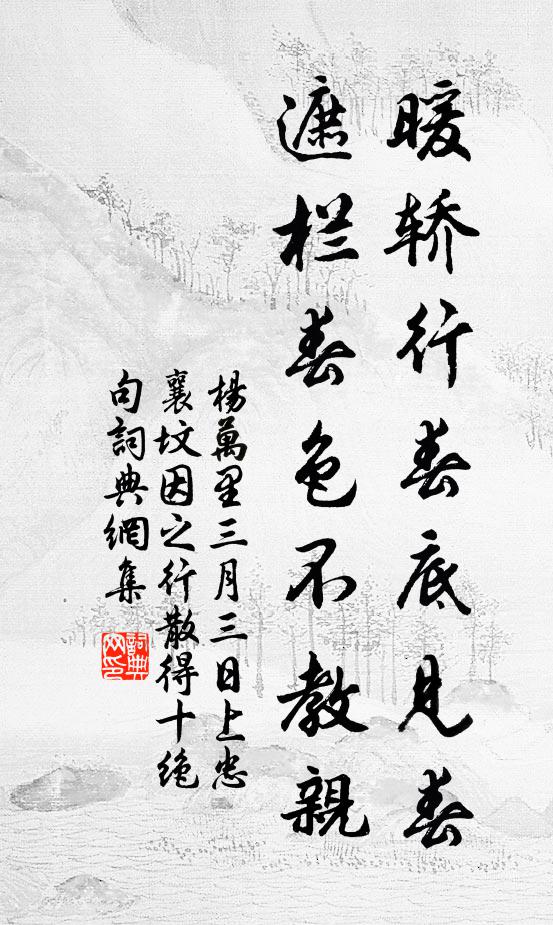 暖轿行春底见春
遮栏春色不教亲
楊萬里三月三日上忠
襄坟因之行散得十绝
句詞典網集
詞典
网印